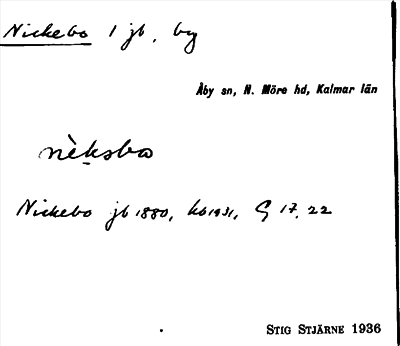 Nickebo 1 jb. by
Åby sn, N. Möre hd, Kalmar län
nèksbo
Nickebo jb 1880, kb 1931, G 17. 22
STIG STJÄRNE 1936